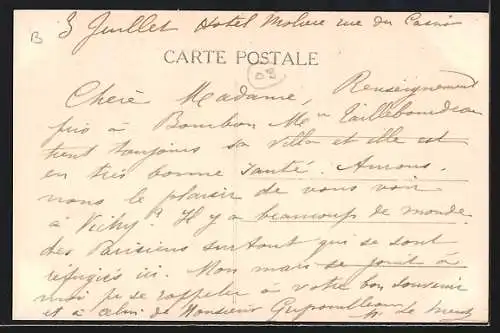 B 3 Juillet Hotel Molière rue du Casino
CARTE POSTALE
Chère Madame, Renseignement
pris à Bourbon Me Taillebourdeau
tient toujours sa villa et elle est
en très bonne santé. Aurons.
nous le plaisir de vous voir
à Vichy? Il y a beaucoup de monde
des Parisiens surtout qui se sont
réfugiés ici. Mon mari se joint à
moi pr se rappeler à votre bon souvenir
et à celui de Monsieur